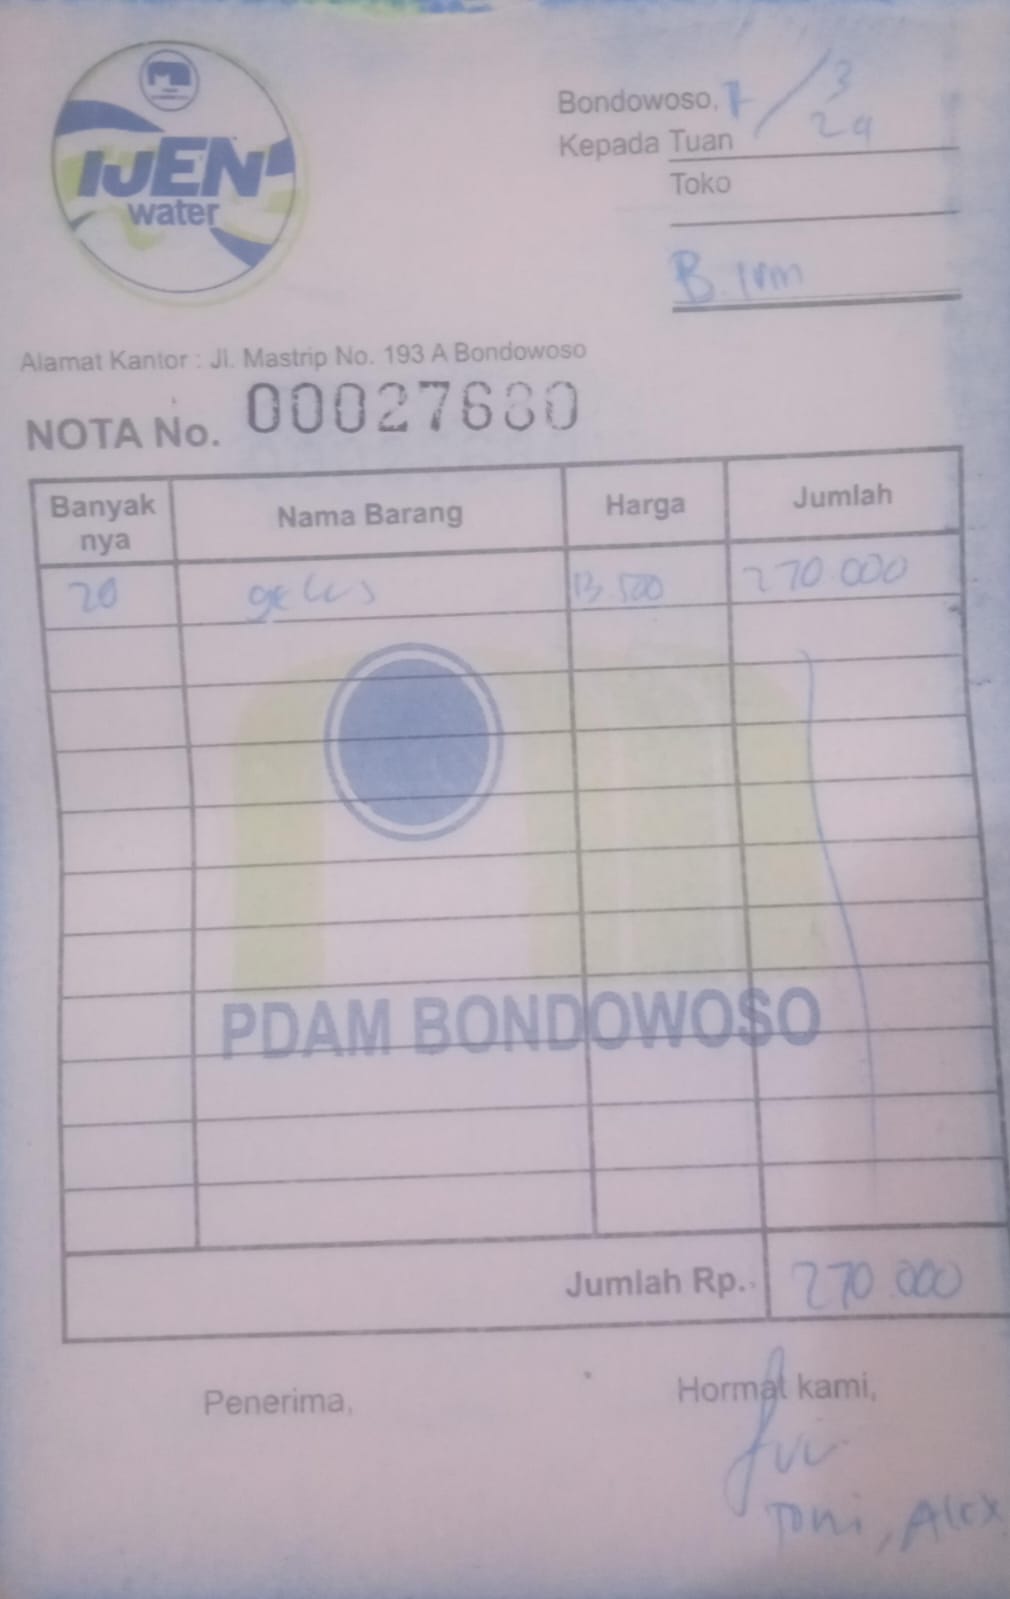 IJEN
water
Bondowoso, 7/3
24
Kepada Tuan
Toko
B. Irm
Alamat Kantor : Jl. Mastrip No. 193 A Bondowoso
NOTA No. 00027680
Banyak nya Nama Barang Harga Jumlah
20 gelas 13.500 270.000
PDAM BONDOWOSO
Jumlah Rp. 270.000
Penerima, Hormat kami,
Toni, Alex